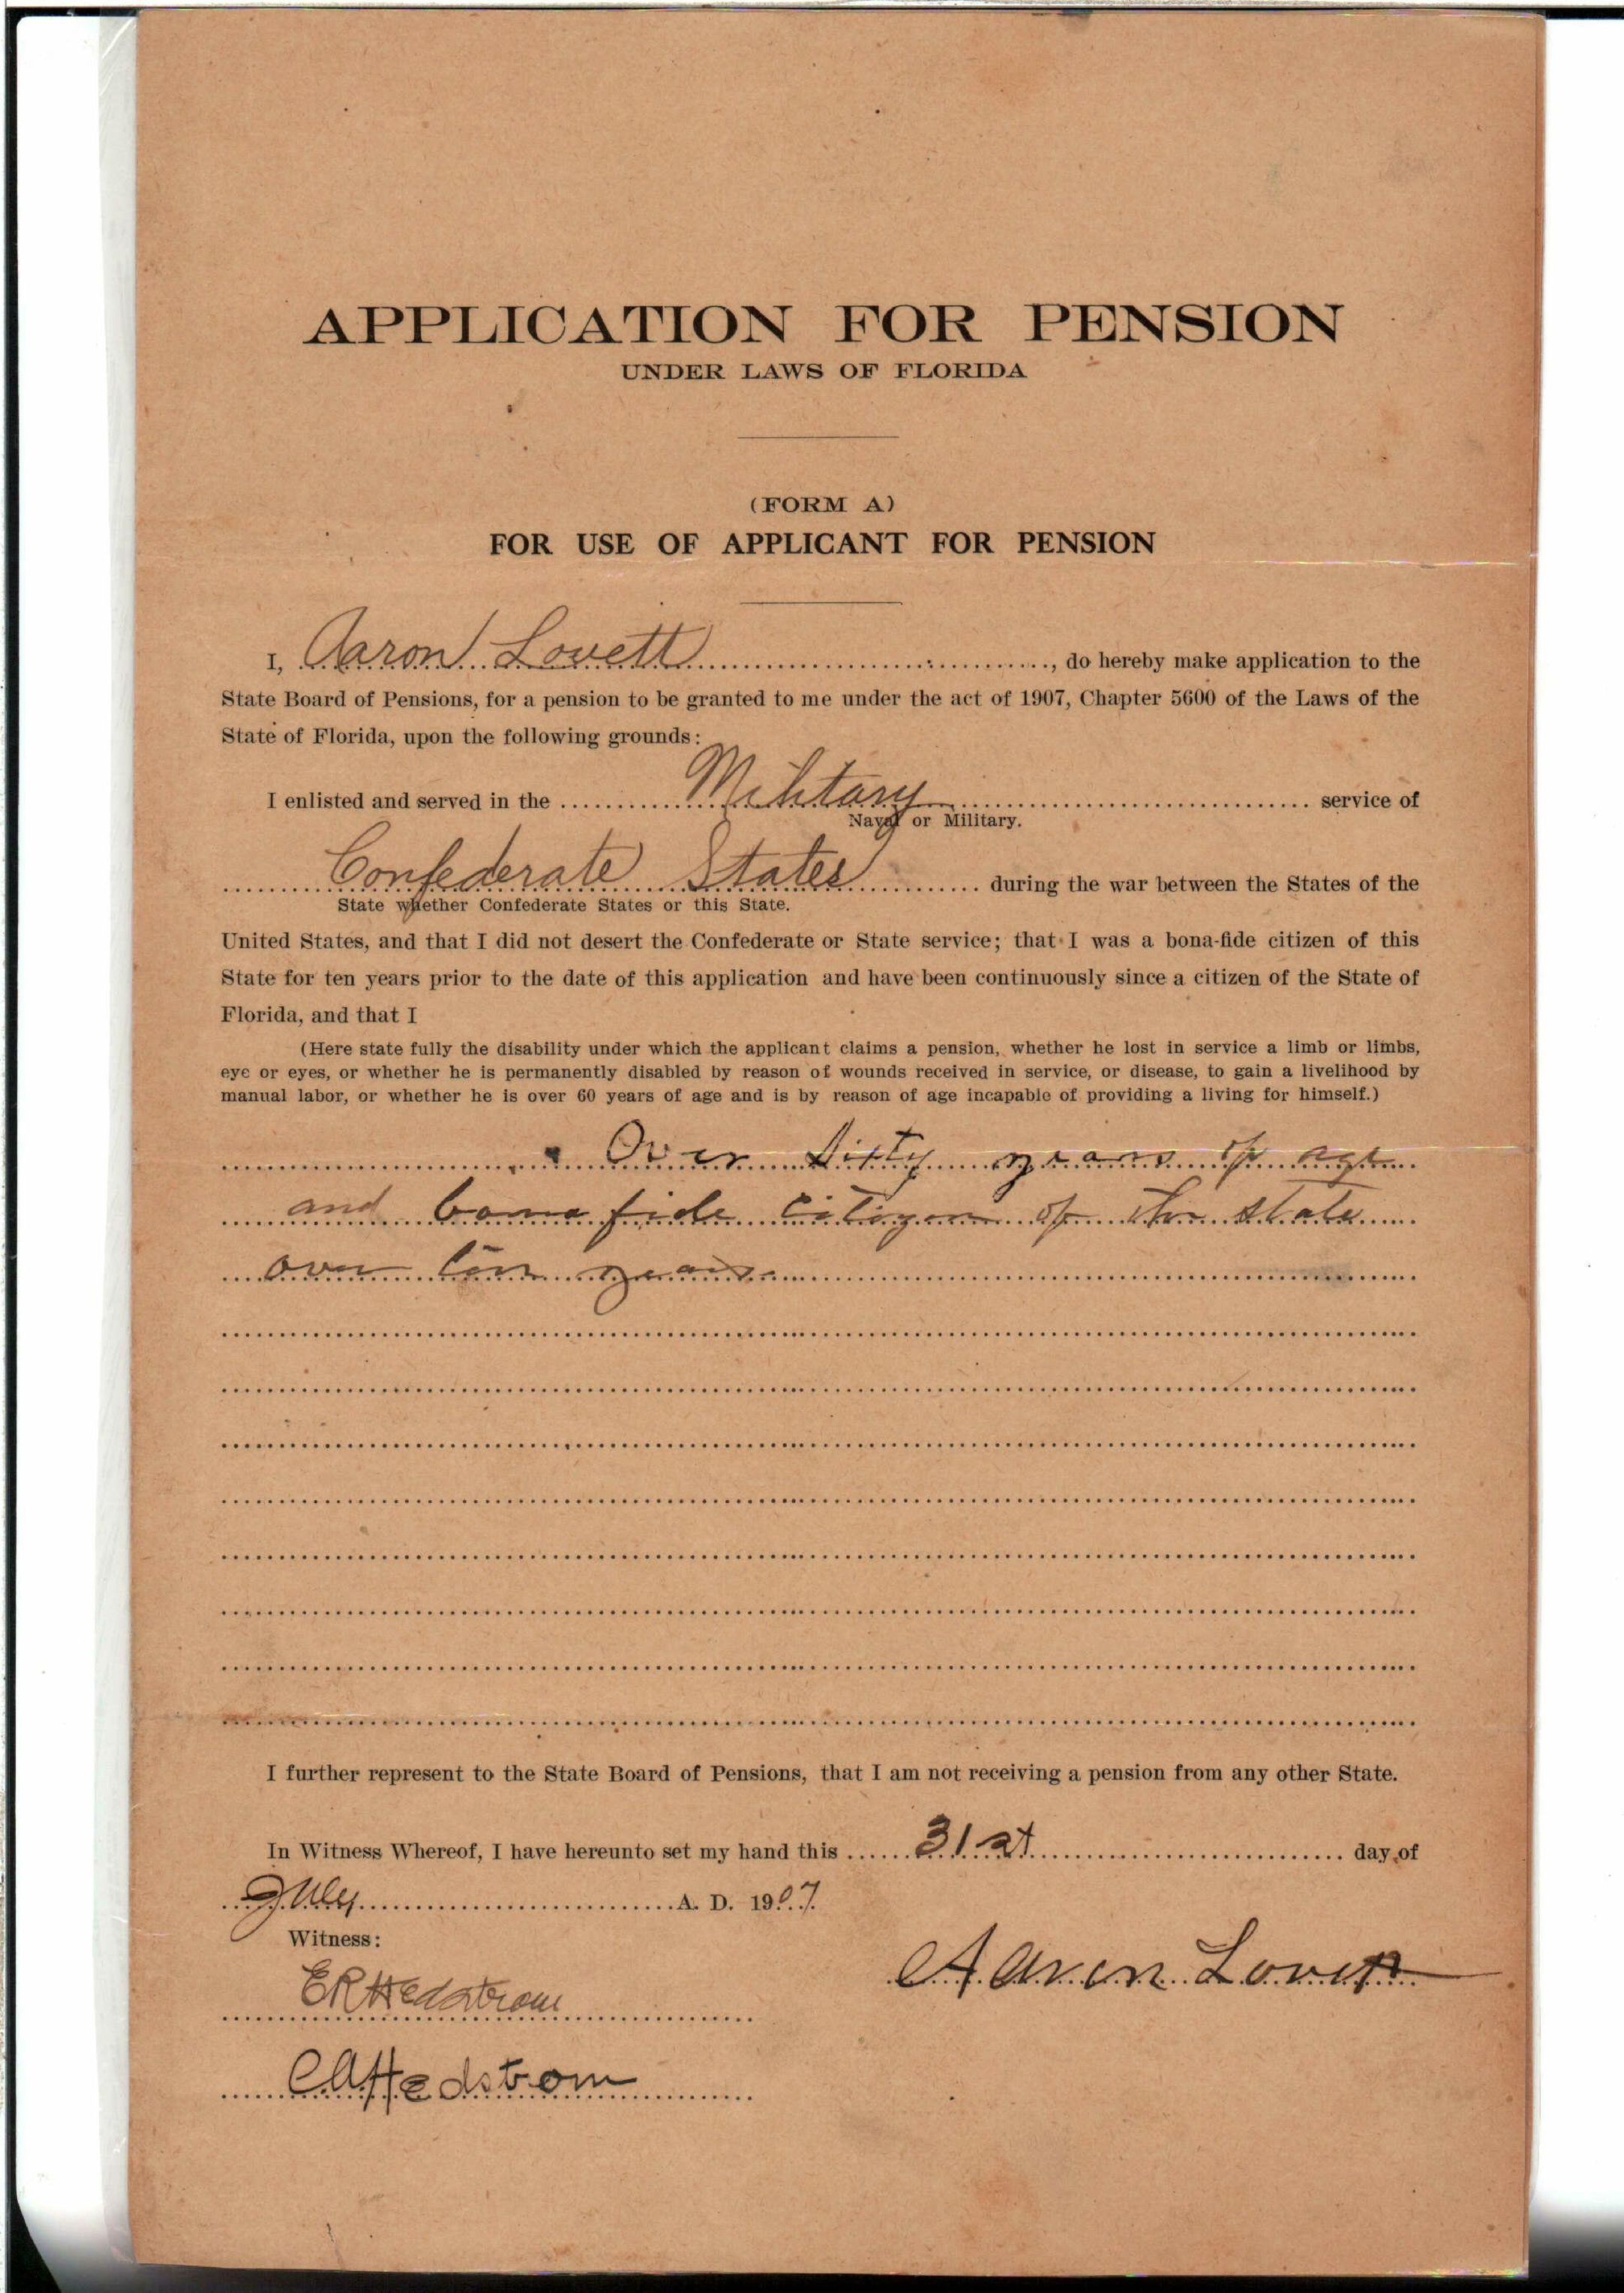 APPLICATION FOR PENSION
UNDER LAWS OF FLORIDA
(FORM A)
FOR USE OF APPLICANT FOR PENSION
I, Aaron Lovett, do hereby make application to the
State Board of Pensions, for a pension to be granted to me under the act of 1907, Chapter 5600 of the Laws of the
State of Florida, upon the following grounds:
I enlisted and served in the Military service of
Naval or Military.
Confederate States during the war between the States of the
State whether Confederate States or this State.
United States, and that I did not desert the Confederate or State service; that I was a bona-fide citizen of this
State for ten years prior to the date of this application and have been continuously since a citizen of the State of
Florida, and that I
(Here state fully the disability under which the applicant claims a pension, whether he lost in service a limb or limbs,
eye or eyes, or whether he is permanently disabled by reason of wounds received in service, or disease, to gain a livelihood by
manual labor, or whether he is over 60 years of age and is by reason of age incapable of providing a living for himself.)
Over Sixty years of age
and bona fide citizen of the state
over ten years
I further represent to the State Board of Pensions, that I am not receiving a pension from any other State.
In Witness Whereof, I have hereunto set my hand this 31st day of
July A. D. 1907.
Witness:
Aaron Lovett
E R Hedstrom
C A Hedstrom